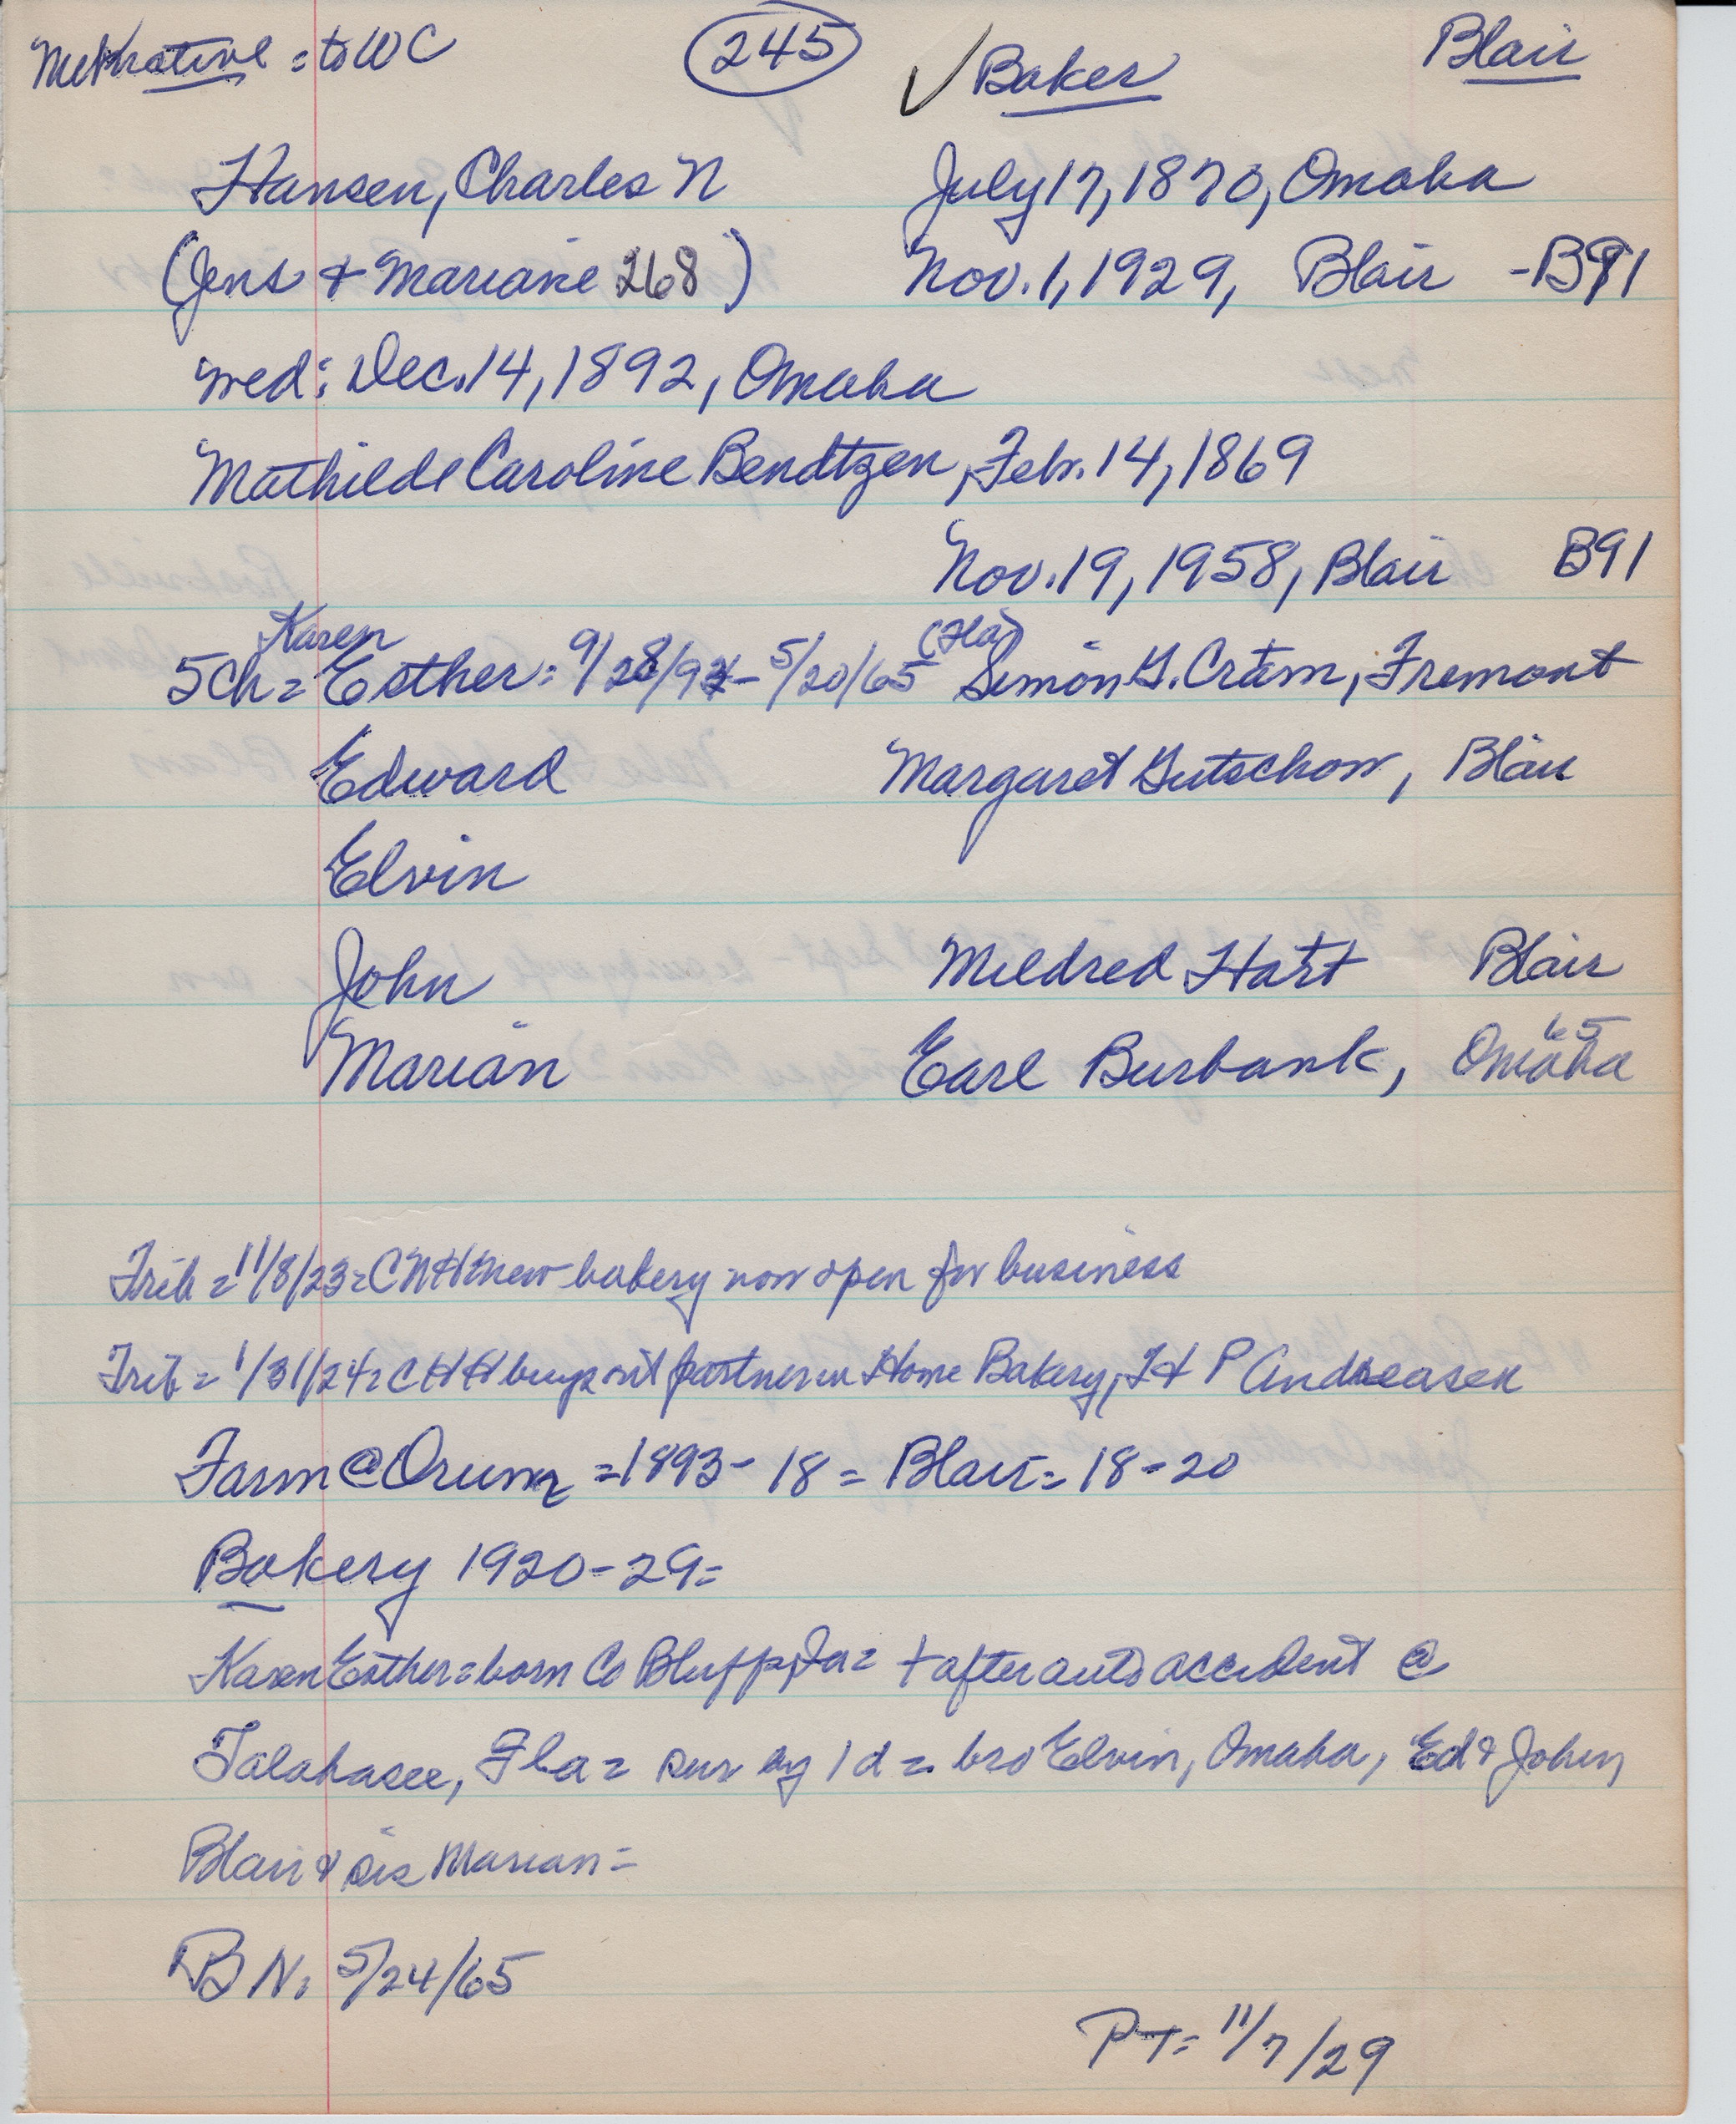 native = to WC (245) ✓ Baker Blair
Hansen, Charles N July 17, 1870, Omaha
(Jens + Mariane 268) Nov. 1, 1929, Blair - B91
wed: Dec. 14, 1892, Omaha
Mathilde Caroline Bendtzen, Febr. 14, 1869
Nov. 19, 1958, Blair B91
Karen (Fla)
5 ch = Esther: 9/28/93 - 5/20/65 Simon G. Cram, Fremont
Edward Margaret Gutschow, Blair
Elvin
John Mildred Hart Blair
65
Marian Earl Burbank, Omaha
Trib = 11/8/23 = CNH new bakery now open for business
Trib = 1/31/24 = CHH buys out partner in Home Bakery, H P Andreasen
Farm @ Orum = 1893 - 18 = Blair = 18-20
Bakery 1920-29=
Karen Esther = born Co Bluffs, Ia = + after auto accident @
Talahasee, Fla = sur by 1 d = bro Elvin, Omaha, Ed & John,
Blair & sis Marian =
BN: 5/24/65
PT = 11/7/29